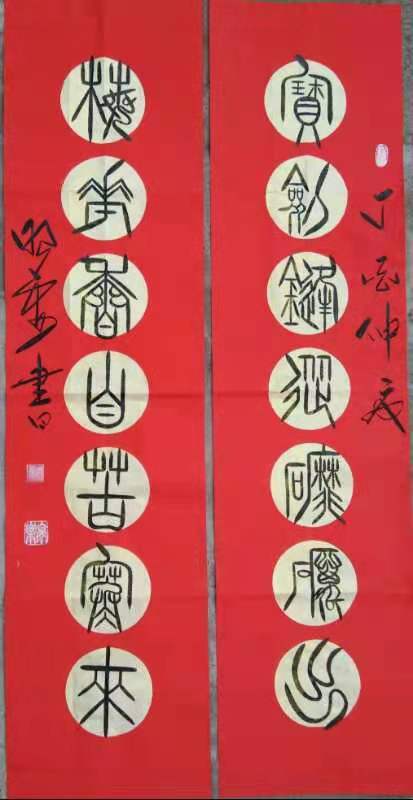 寶劍鋒從磨礪出
丁酉仲夏
梅華香自苦寒來
書